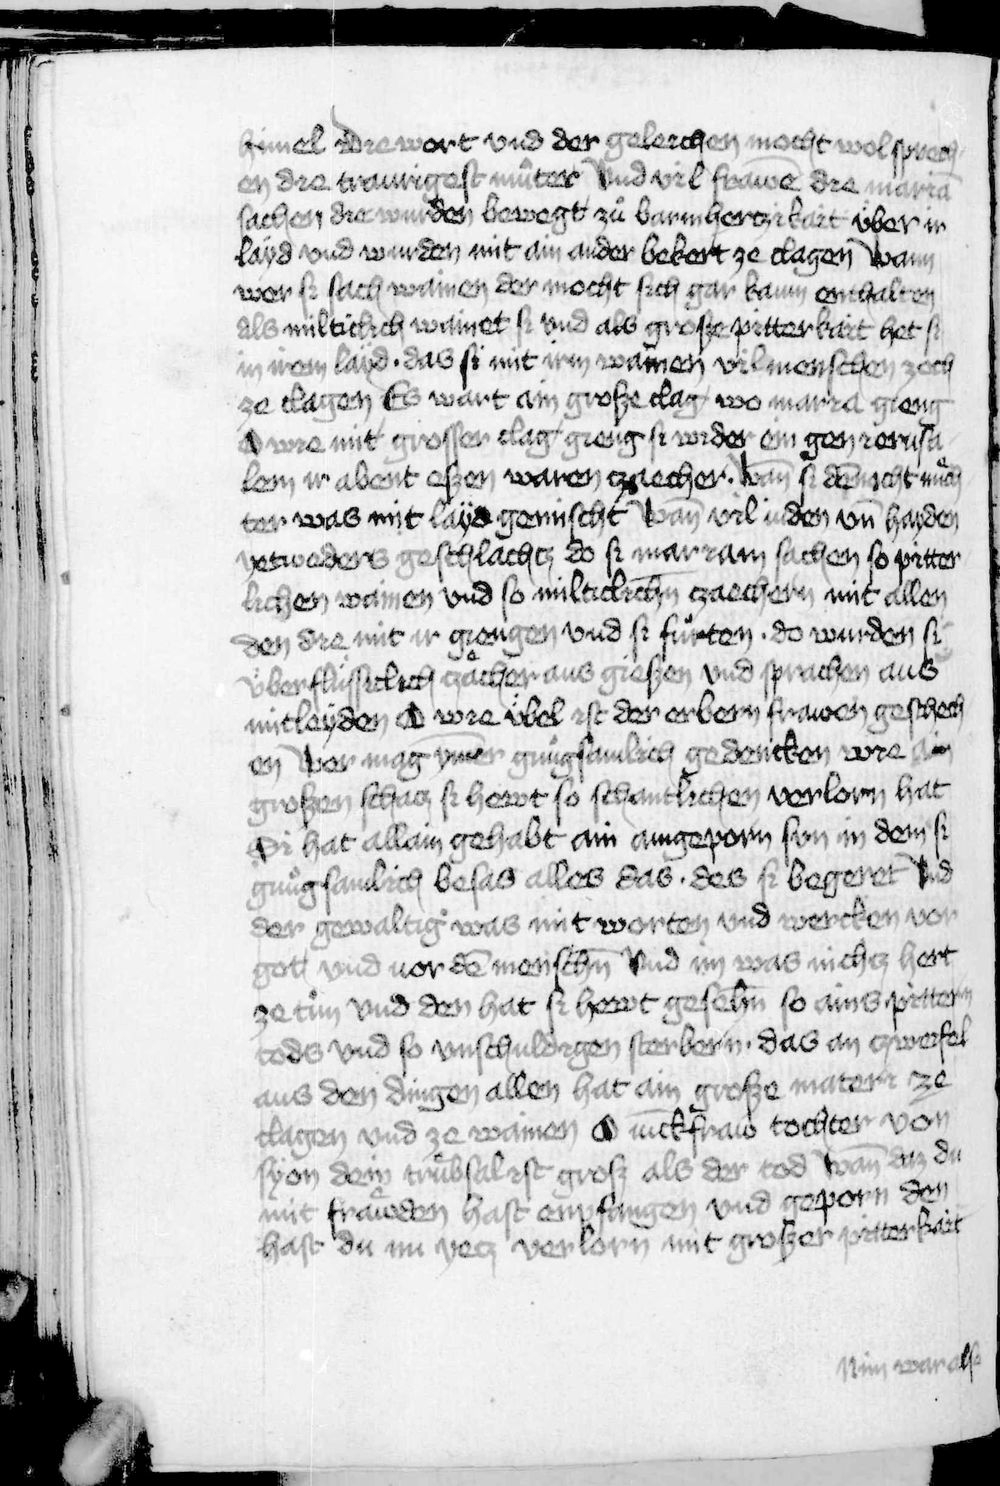 himel Die wort vnd der geleichen mocht wol sprech-
en die traurigest muͦter Vnd vil frawē die maria
sachen die wurden bewegt zuͦ barmhertzikait über ir
layd vnd wurden mit ain ander bekert ze clagen Wann
wer si sach wainen der mocht sich gar kaum enthalten
Als miltichlich wainet si vnd als große pitterkait het si
in irem laÿd · das si mit irm wainen vil menschen zoch
ze clagen Es wart ain große clag wo maria gieng
O wie mit grosser clag gieng si wider ein gen ierusa-
lem ir abent eßen waren czaecher · Wan̄ si
ter was mit layd gemischt Wan̄ vil iuden vn̄ hayden
yetweders geschlachtz do si mariam sachen so pitter
lichen wainen vnd so miltichlichn̄ czaechern mit allen
den die mit ir giengen vnd si fuͦrten · do wurden si
überflüssiclich czaͤcher aus gießen vnd sprachen aus
mitleÿden O wie übel ist der erbern frawen geschech
en Wer mag ymer gnuͦgsamlich gedencken wie ain
großen schacz si hewt so schantlichen verlorn hat
Si hat allain gehabt ain aingeporn sun in dem si
gnuͦgsamlich besas alles das · des si begeret Vnd
der gewaltig was mit worten vnd wercken vor
got vnd uor dē menschn̄ Vnd im was nichcz hert
ze tuͦn vnd den hat si hewt gesehn̄ so ains pittern
tods vnd so vnschuldigen sterbern · das an czweifel
aus den dingen allen hat ain große materi ze
clagen vnd ze wainen O iūckfraw tochter von
syon dein truͤbsal ist groß als der tod Wan̄ daz du
mit fraͤwden hast enpfangen vnd geporn den
hast du nu yecz verlorn mit großer pitterkait
Nim war also